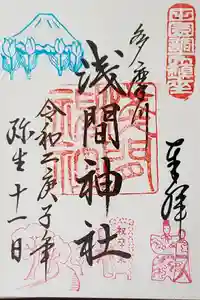 奉拝
多摩川
浅間神社
令和二庚子年
弥生十一日